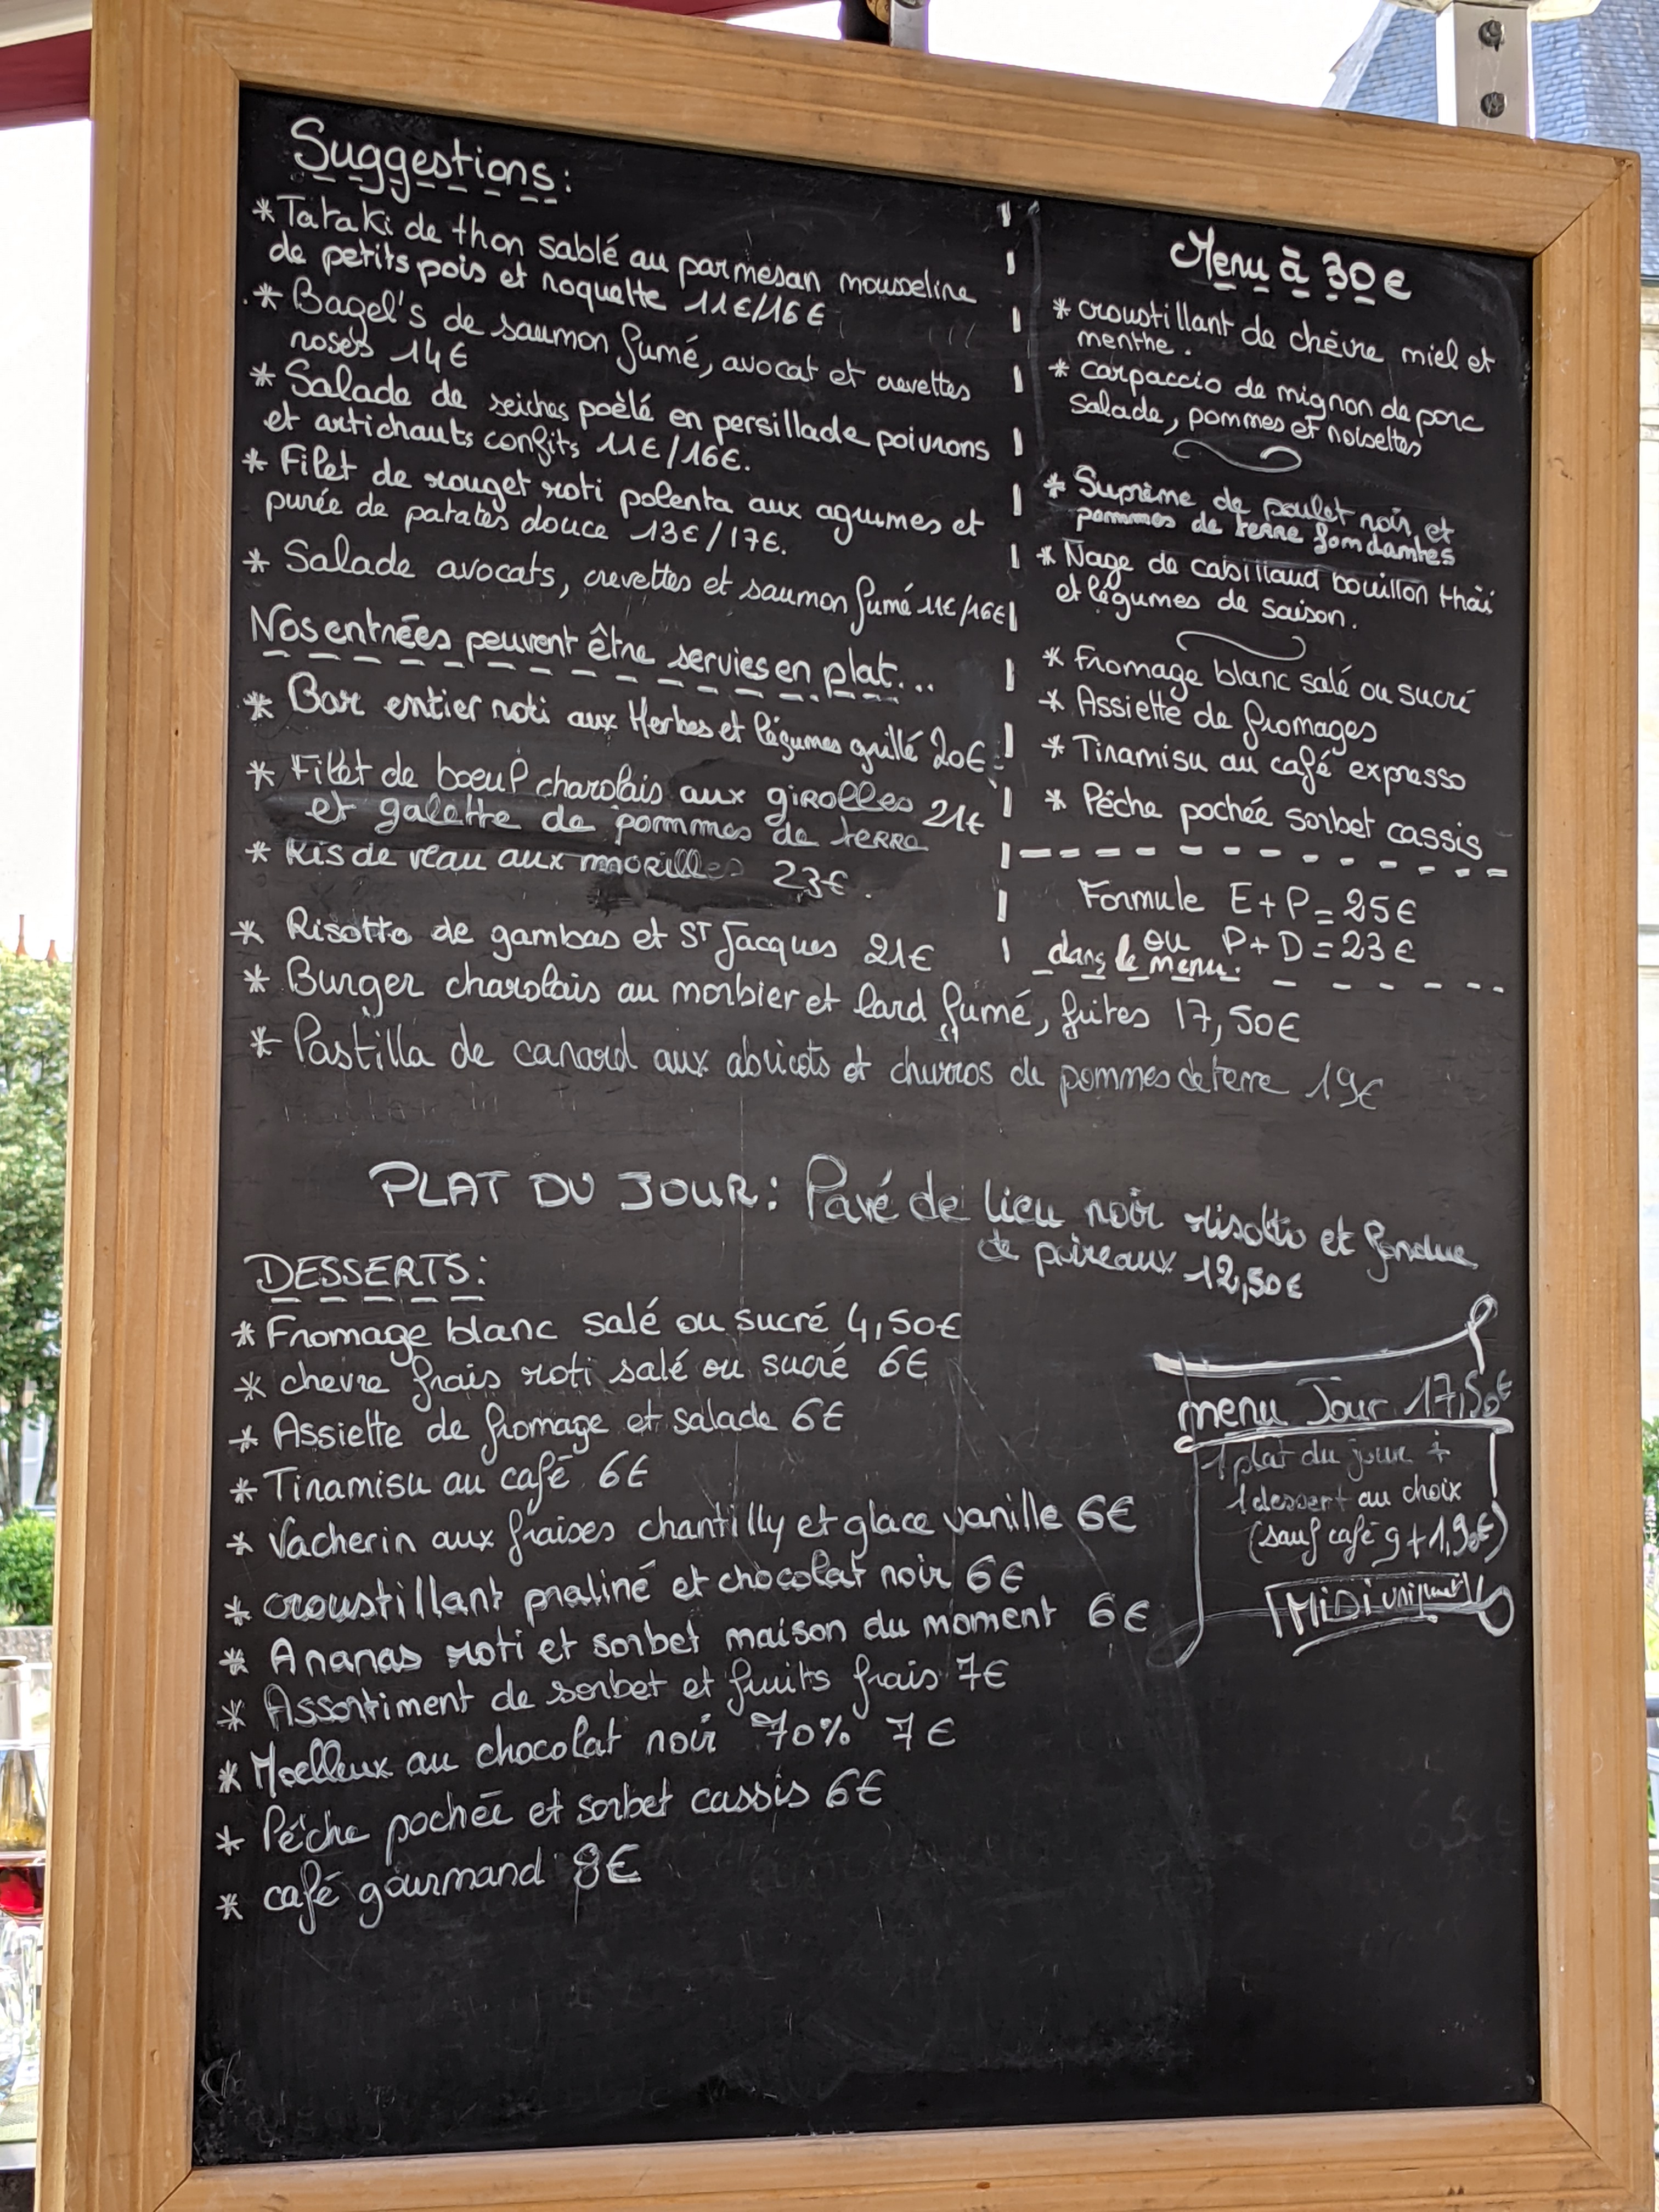 Suggestions:
*Tataki de thon sablé au parmesan mousseline
de petits pois et roquette 11€/16€
* Bagel's de saumon fumé, avocat et crevettes
roses 14€
* Salade de seiches poèlé en persillade poivrons
et artichauts confits 11€/16€.
* Filet de rouget roti polenta aux agrumes et
purée de patates douce 13€/17€.
* Salade avocats, crevettes et saumon fumé 11€/16€
Nos entrées peuvent être servies en plat...
* Bar entier roti aux Herbes et légumes grillé 20€
* Filet de boeuf charolais aux girolles 21€
et galette de pommes de terre
* Ris de veau aux morilles 23€.
* Risotto de gambas et ST Jacques 21€
* Burger charolais au morbier et lard fumé, frites 17,50€
* Pastilla de canard aux abricots et churros de pommes de terre 19€
Menu à 30€
* croustillant de chèvre miel et
menthe.
* carpaccio de mignon de porc
salade, pommes et noisettes
* Suprème de poulet noir, et
pommes de terre fondantes
* Nage de cabillaud bouillon thaï
et légumes de saison.
* Fromage blanc salé ou sucré
* Assiette de fromages
* Tiramisu au café expresso
* Pêche pochée sorbet cassis
Formule E+P=25€
ou P+D=23€
dans le menu.
PLAT DU JOUR: Pavé de lieu noir risotto et fondue
de poireaux 12,50€
DESSERTS:
* Fromage blanc salé ou sucré 4,50€
* chevre frais roti salé ou sucré 6€
* Assiette de fromage et salade 6€
* Tiramisu au café 6€
* Vacherin aux fraises chantilly et glace vanille 6€
* croustillant praliné et chocolat noir 6€
* Ananas roti et sorbet maison du moment 6€
* Assortiment de sorbet et fruits frais 7€
* Moelleux au chocolat noir 70% 7€
* Pêche pochée et sorbet cassis 6€
* café gourmand 8€
menu Jour 17,50€
1 plat du jour +
1 dessert au choix
(sauf café g +1,90€)
MiDi uniqmet